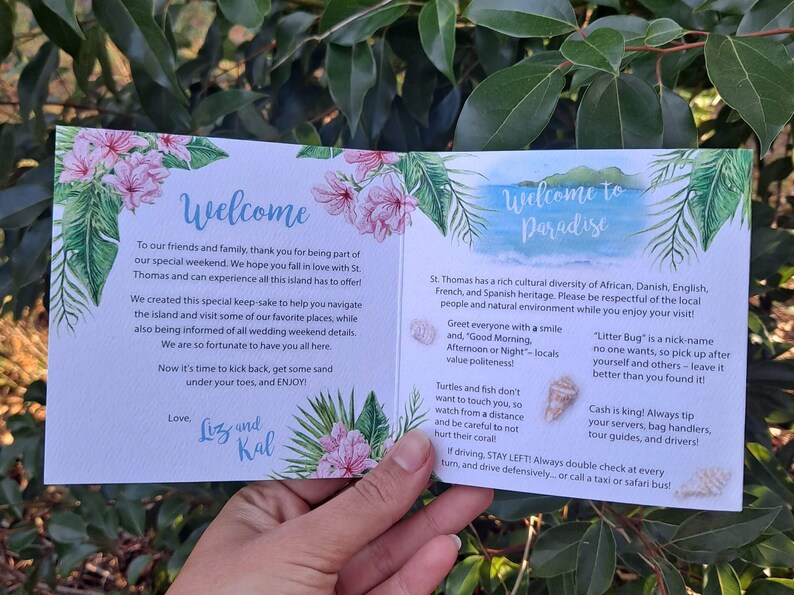 Welcome
To our friends and family, thank you for being part of
our special weekend. We hope you fall in love with St.
Thomas and can experience all this island has to offer!
We created this special keep-sake to help you navigate
the island and visit some of our favorite places, while
also being informed of all wedding weekend details.
We are so fortunate to have you all here.
Now it's time to kick back, get some sand
under your toes, and ENJOY!
Love,
Liz and
Kal
Welcome to
Paradise
St. Thomas has a rich cultural diversity of African, Danish, English,
French, and Spanish heritage. Please be respectful of the local
people and natural environment while you enjoy your visit!
Greet everyone with a smile
and, "Good Morning,
Afternoon or Night"– locals
value politeness!
"Litter Bug" is a nick-name
no one wants, so pick up after
yourself and others – leave it
better than you found it!
Turtles and fish don't
want to touch you, so
watch from a distance
and be careful to not
hurt their coral!
Cash is king! Always tip
your servers, bag handlers,
tour guides, and drivers!
If driving, STAY LEFT! Always double check at every
turn, and drive defensively... or call a taxi or safari bus!